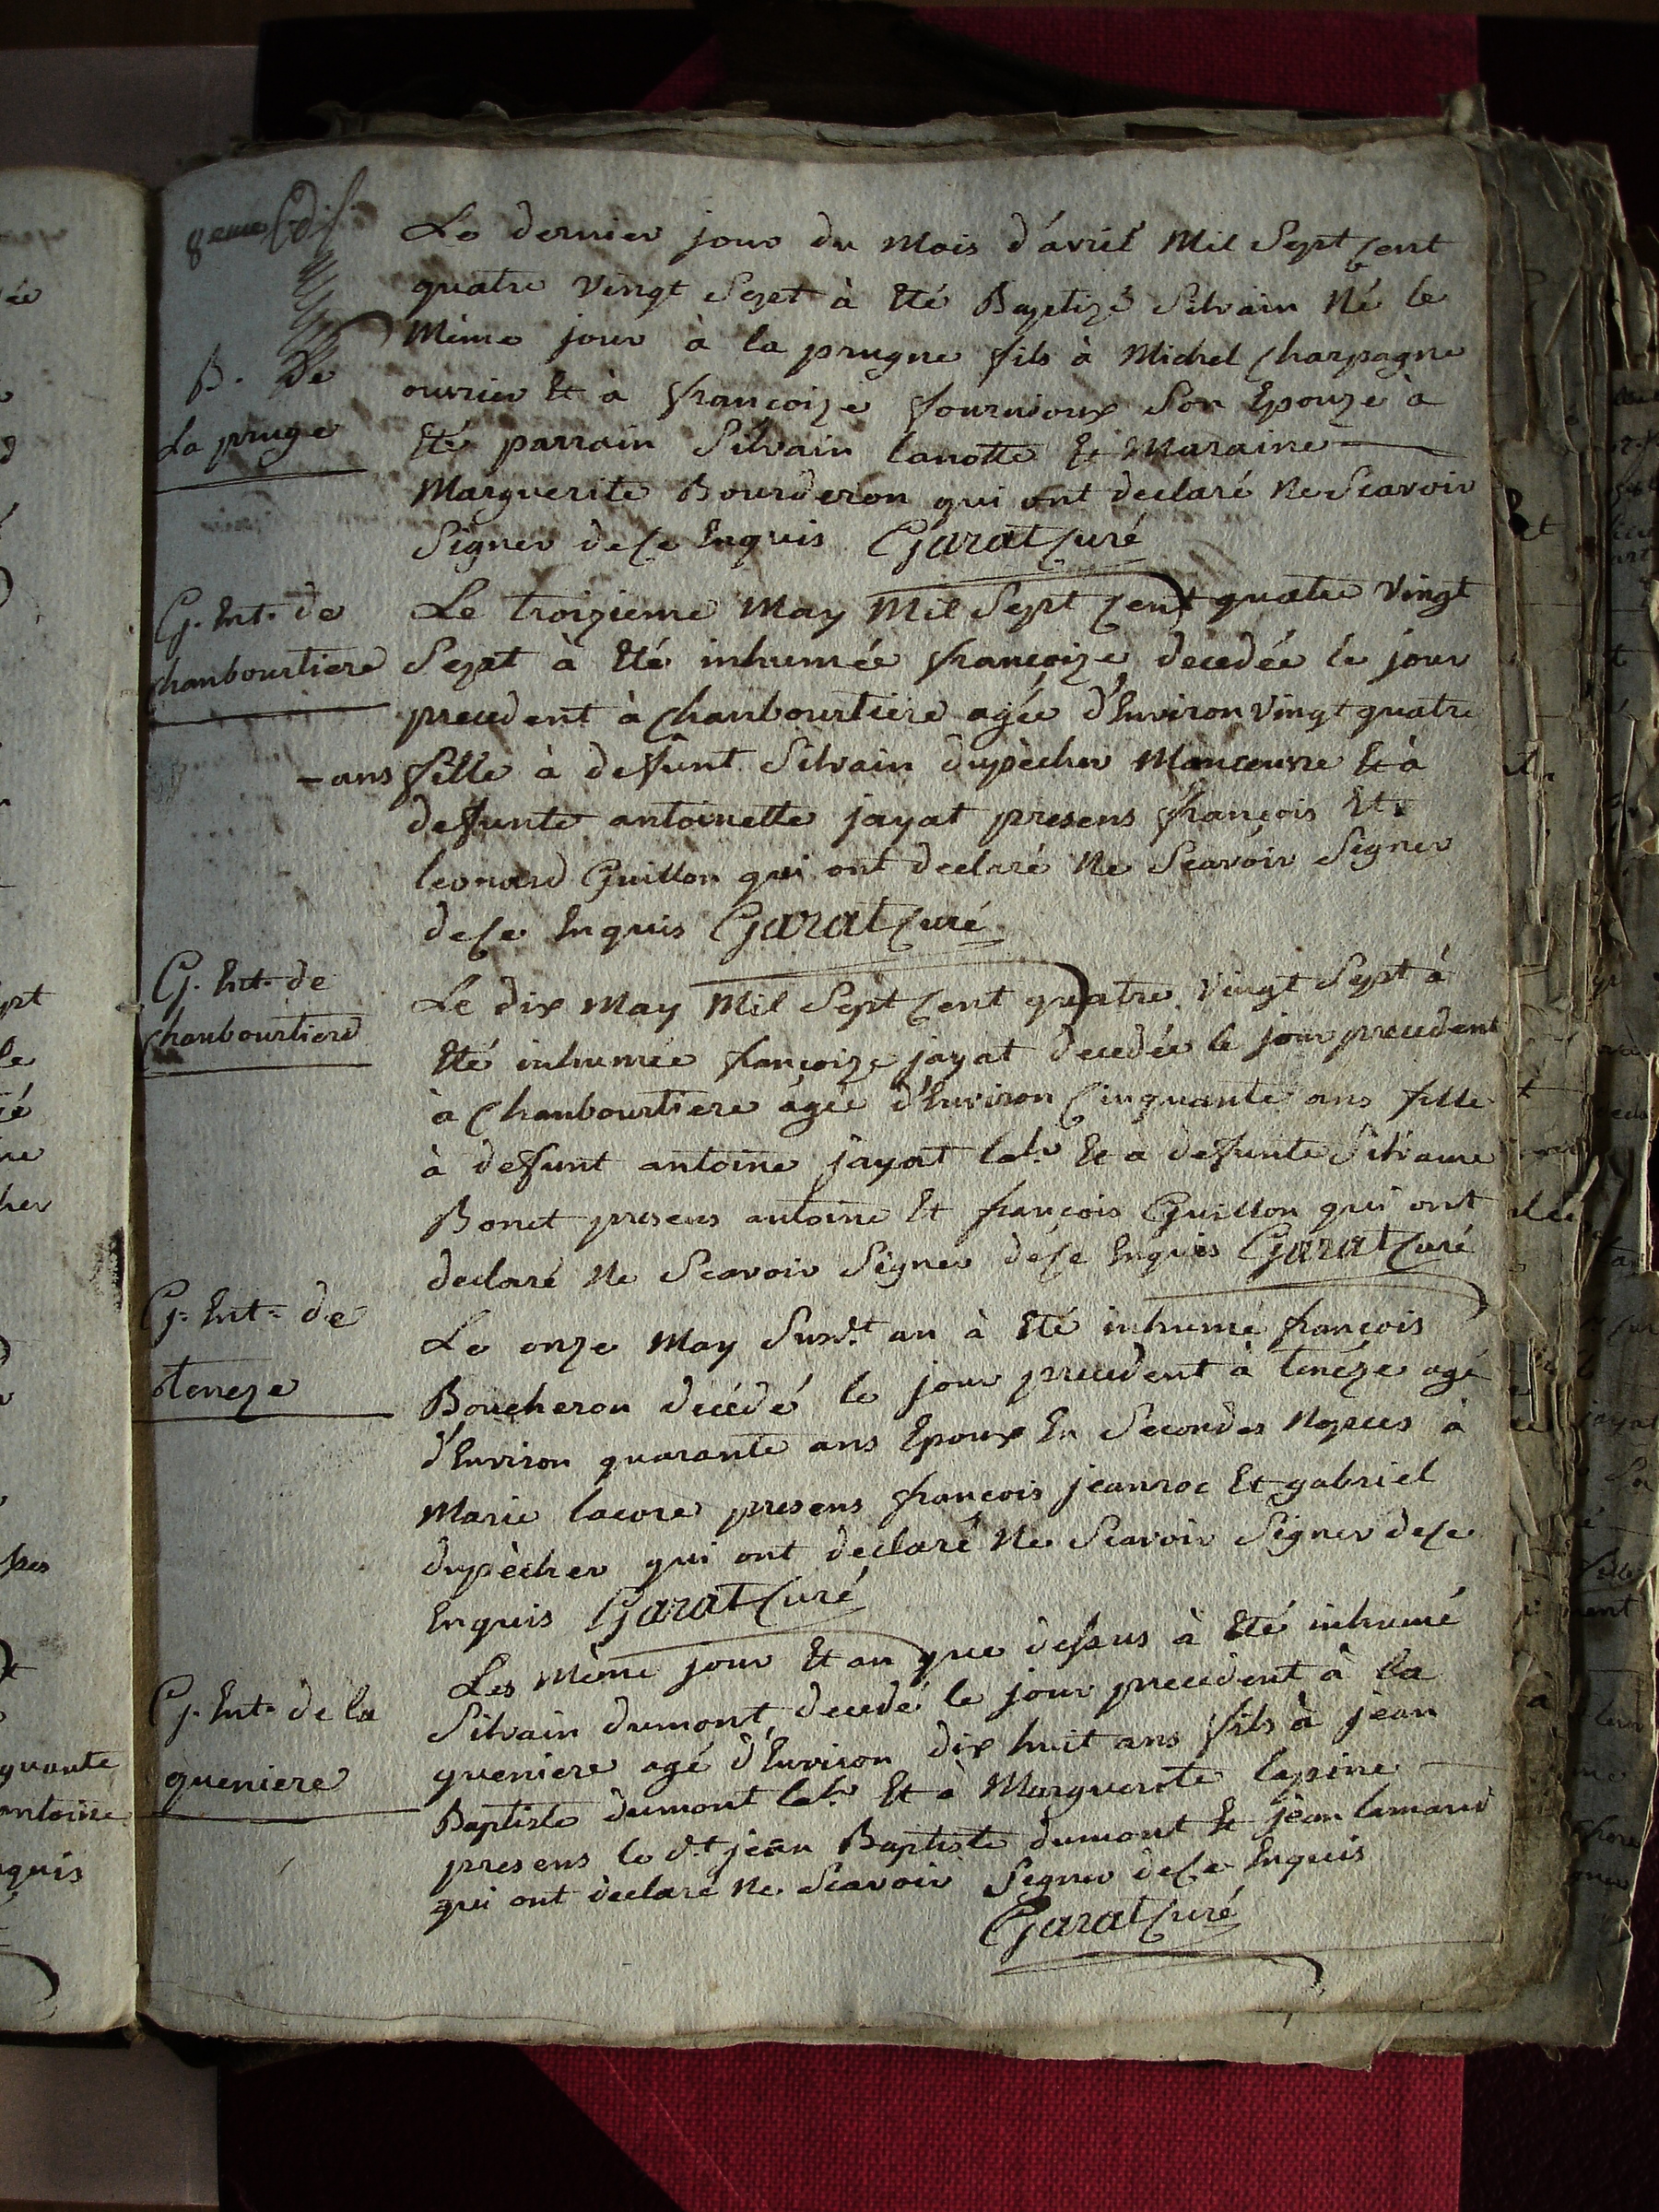 8eme
B. De
La pruge
Le dernier jour du Mois d'avril Mil Sept Cent
quatre vingt Sept à Eté Baptizé Silvain Né le
Même jour à la prugne fils à Michel Charpagne
ouvrier Et à françoize fournioux Son Epouze à
Eté parrain Silvain lanotte Et Maraine
Marguerite Bourderon qui ont declaré Ne Scavoir
Signer de Ce Enquis Garat Curé
G. Ent. de
Chanbourtiere
Le troizieme May Mil Sept Cent quatre vingt
Sept à Eté inhumée françoize decedée le jour
precedent à Chanbourtiere agée d'Environ vingt quatre
-ans fille à defunt Silvain dupècher Manoeuvre Et à
defunte antoinette jayat presens françois Et
leonard Guillon qui ont declaré Ne Scavoir Signer
de Ce Enquis Garat Curé
G. Ent. de
Chanbourtiere
Le dix May Mil Sept Cent quatre vingt Sept à
Eté inhumée françoize jayat decedée le jour precedent
à Chanbourtiere agée d'Environ Cinquante ans fille
à defunt antoine jayat labr Et a defunte Silvaine
Bonet presens antoine Et françois Guillon qui ont
declaré Ne Scavoir Signer de Ce Enquis Garat Curé
G. Ent. de
teneze
Le onze May Susdt an à Eté inhumé françois
Boucheron décédé le jour precedent à tenéze agé
d'Environ quarante ans Epoux En Secondes Nopces à
Marie lacore presens françois jeanroc Et gabriel
dupècher qui ont declaré Ne Scavoir Signer de Ce
Enquis Garat Curé
G. Ent. de la
queniere
Les Même jour Et an que dessus à Eté inhumé
Silvain dumont decedé le jour precedent à la
queniere agé d'Environ dix huit ans fils à jean
Baptiste dumont labr Et à Marguerite lapine
presens le dt jean Baptiste dumont Et jean lamard
qui ont declaré Ne Scavoir Signer de Ce Enquis
Garat Curé